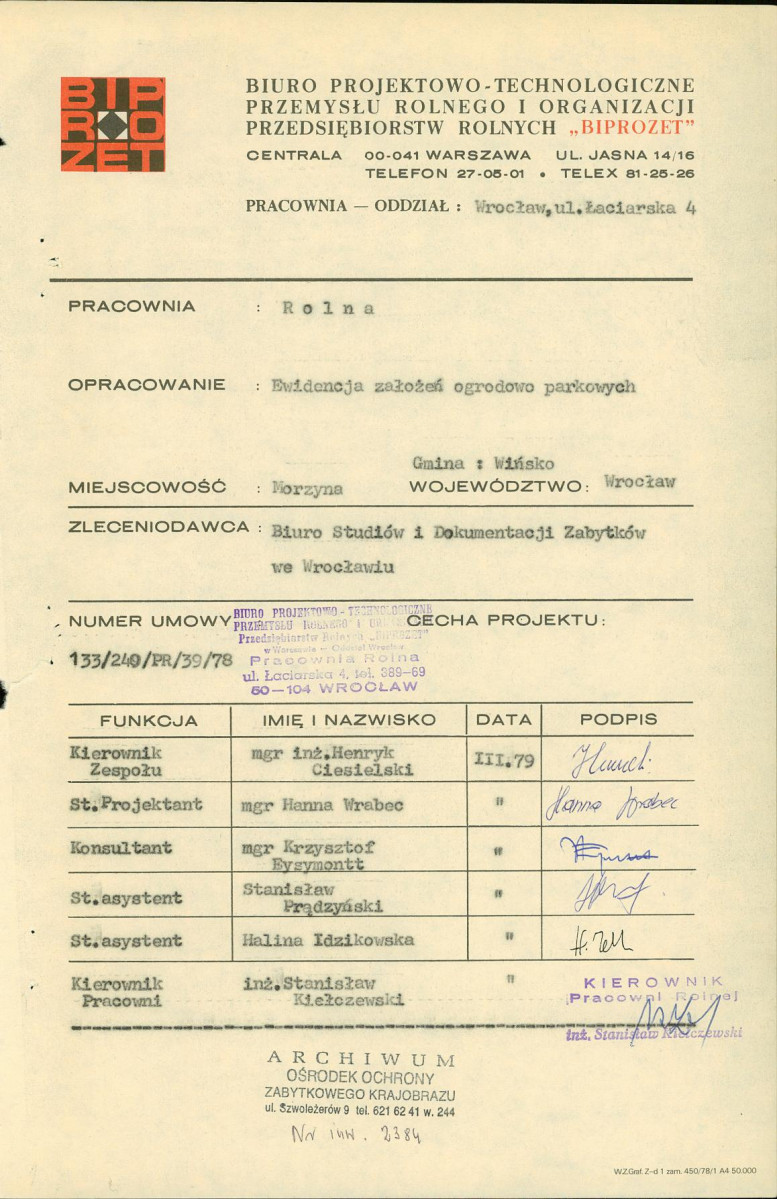 BIP
ROZ
ZET
BIURO PROJEKTOWO-TECHNOLOGICZNE
PRZEMYSŁU ROLNEGO I ORGANIZACJI
PRZEDSIĘBIORSTW ROLNYCH „BIPROZET”
CENTRALA 00-041 WARSZAWA UL. JASNA 14/16
TELEFON 27-05-01 • TELEX 81-25-26
PRACOWNIA — ODDZIAŁ : Wrocław,ul.Łaciarska 4
PRACOWNIA : Rolna
OPRACOWANIE : Ewidencja założeń ogrodowo parkowych
Gmina : Wińsko
MIEJSCOWOŚĆ : Morzyna WOJEWÓDZTWO: Wrocław
ZLECENIODAWCA : Biuro Studiów i Dokumentacji Zabytków
we Wrocławiu
NUMER UMOWY CECHA PROJEKTU:
133/240/PR/39/78
BIURO PROJEKTOWO-TECHNOLOGICZNE
PRZEMYSŁU ROLNEGO I
Przedsiębiorstw Rolnych „BIPROZET”
w Warszawie — Oddział Wrocław
Pracownia Rolna
ul. Łaciarska 4, tel. 389-69
50-104 WROCŁAW
FUNKCJA IMIĘ I NAZWISKO DATA PODPIS
Kierownik mgr inż.Henryk III.79
Zespołu Ciesielski
St.Projektant mgr Hanna Wrabec " Hanna Wrabec
Konsultant mgr Krzysztof "
Eysymontt
St.asystent Stanisław "
Prądzyński
St.asystent Halina Idzikowska "
Kierownik inż.Stanisław "
Pracowni Kiełczewski
KIEROWNIK
Pracowni Rolnej
inż. Stanisław Kiełczewski
ARCHIWUM
OŚRODEK OCHRONY
ZABYTKOWEGO KRAJOBRAZU
ul. Szwoleżerów 9 tel. 621 62 41 w. 244
Nr inw. 2384
W.Z.Graf. Z-d 1 zam. 450/78/1 A4 50.000